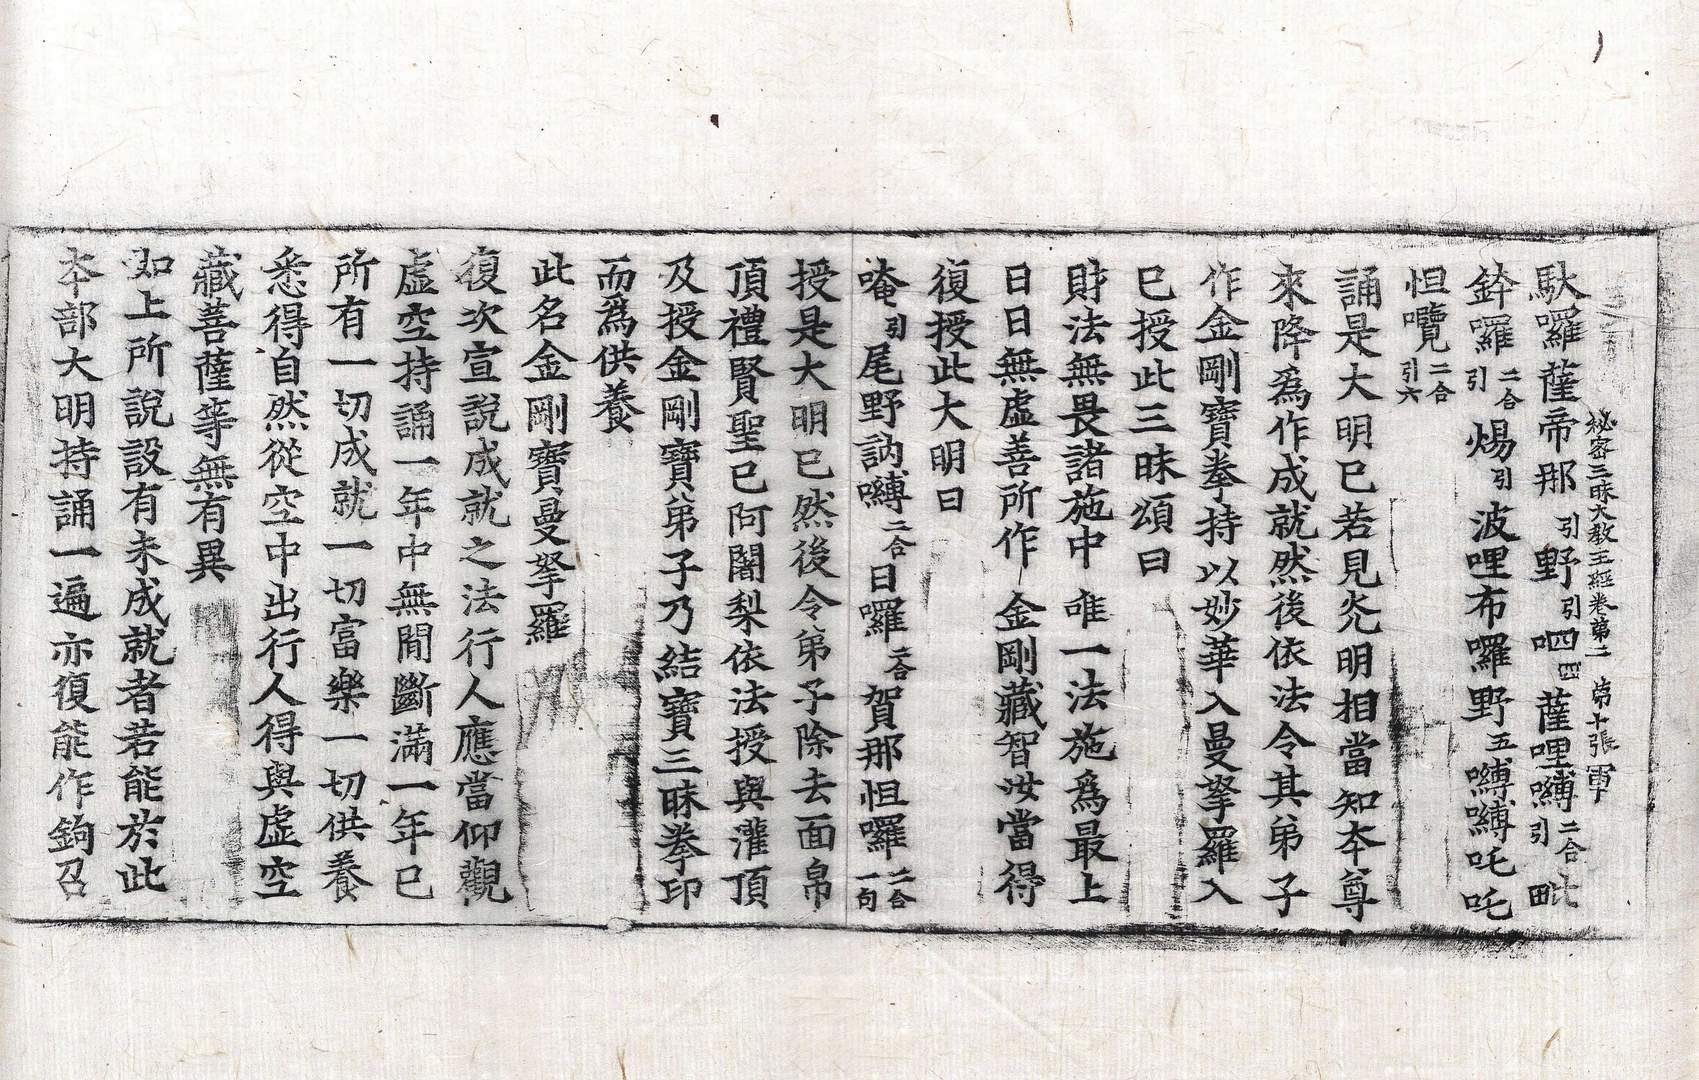 秘密三昧大教王經卷第二 第十張 軍
馱囉薩帝那引野引呬四薩哩嚩二合引毗
鉢囉二合引煬引波哩布囉野五嚩嚩吒吒
怛囕二合引六
誦是大明已若見光明相當知本尊
來降爲作成就然後依法令其弟子
作金剛寶拳持以妙華入曼拏羅入
已授此三昧頌曰
財法無畏諸施中 唯一法施爲最上
日日無虛善所作 金剛藏智汝當得
復授此大明曰
唵引尾野訥嚩二合日囉二合賀那怛囉二合一句
授是大明已然後令弟子除去面帛
頂禮賢聖已阿闍梨依法授與灌頂
及授金剛寶弟子乃結寶三昧拳印
而爲供養
此名金剛寶曼拏羅
復次宣說成就之法行人應當仰觀
虛空持誦一年中無間斷滿一年已
所有一切成就一切富樂一切供養
悉得自然從空中出行人得與虛空
藏菩薩等無有異
如上所說設有未成就者若能於此
本部大明持誦一遍亦復能作鉤召